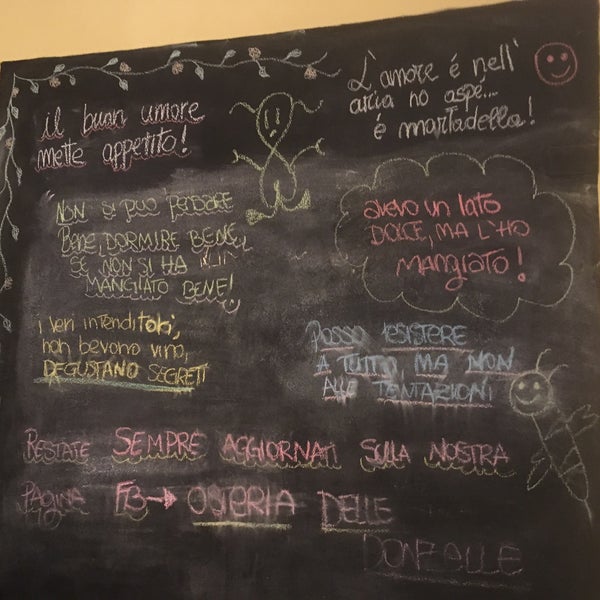 il buon umore
mette appetito!
L'amore é nell'
aria no aspé...
é mortadella!
"NON SI PUÒ PENSARE
BENE, DORMIRE BENE,
SE NON SI HA
MANGIATO BENE!
avevo un lato
DOLCE, MA L'HO
MANGIATO!
i veri intenditori,
non bevono vino,
DEGUSTANO SEGRETI
Posso resistere
A TUTTO, MA NON
ALLE TENTAZIONI
RESTATE SEMPRE AGGIORNATI SULLA NOSTRA
PAGINA FB→ OSTERIA DELLE
DONZELLE